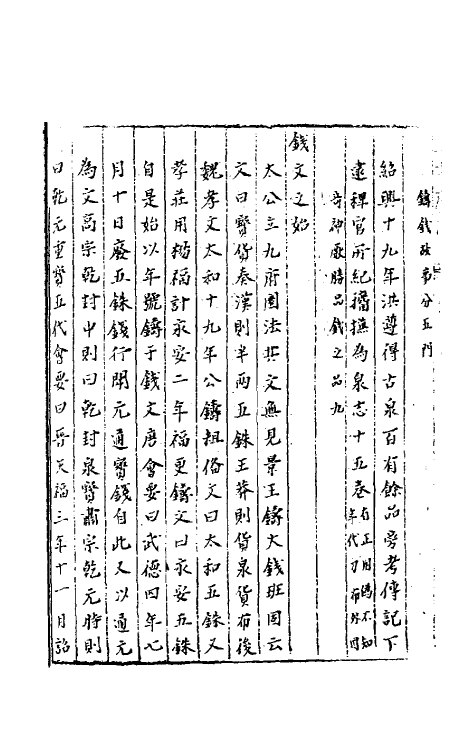 鑄錢故事分五門
紹興十九年洪遵得古泉百有餘品旁考傳記下
逮稗官所紀攟摭為泉志十五卷有正用偽不知年代刀布外國
奇神厭勝品錢之品九
錢文之始
太公立九府圜法其文無見景王鑄大錢班固云
文曰寶貨秦漢則半兩五銖王莽則貨泉貨布後
魏孝文太和十九年公鑄粗俗文曰太和五銖又
孝莊用楊侃計永安二年更鑄文曰永安五銖
自是始以年號鑄于錢文唐會要曰武德四年七
月十日廢五銖錢行開元通寶錢自此又以通元
為文高宗乾封中則曰乾封泉寶肅宗乾元時則
曰乾元重寶五代會要曰晉天福三年十一月詔